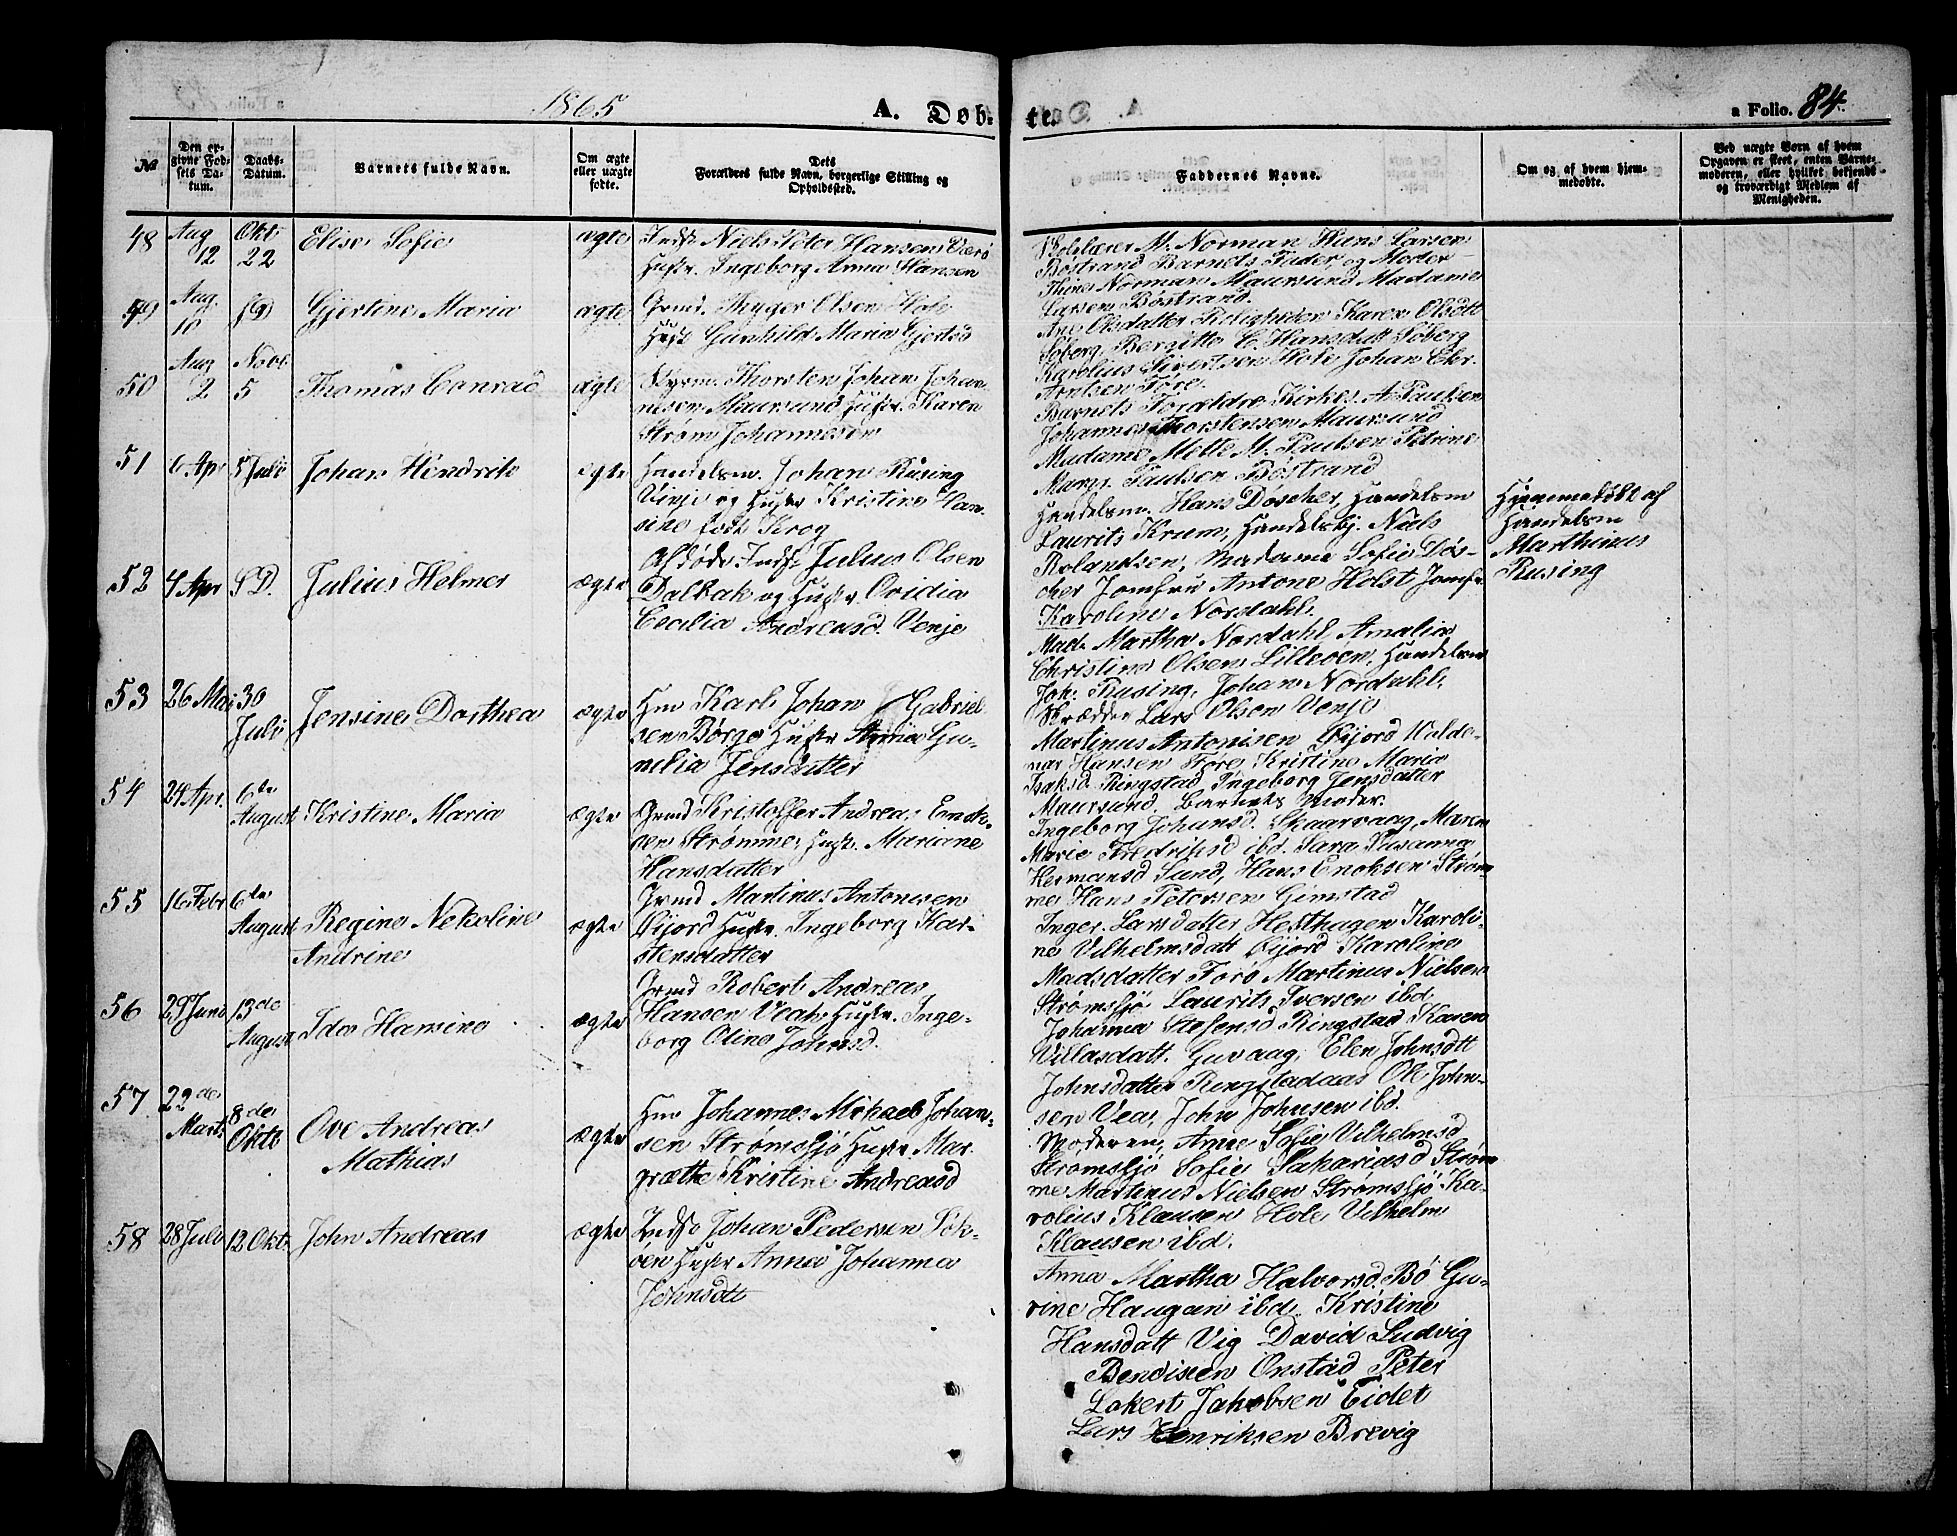 1865
A. Døb-
te.
a Folio. 84
№
Den opgivne Fødsels Datum.
Daabs-Datum.
Barnets fulde Navn.
Om ægte eller uægte fødte.
Dets Forældres fulde Navn, borgerlige Stilling og Opholdssted.
Faddernes Navne.
Om og af hvem hjemmedøbte.
Ved uægte Børn af hvem Opgaven er skeet, enten Barnemoderen, eller hvilket bekjendt og troværdigt Medlem af Menigheden.
48 Aug 12 Okt. 22 Elise Sofie ægte Indst Niels Peter Hansen Værø
Hustr. Ingeborg Anna Hansen
M. Norman Hans Larsen
Bøstrand Barnets Fader og Moder
Thine Norman Maursund Madame
Larsen Bøstrand.
49 Aug. 10 Gjertine Maria ægte Grmd. Thyger Olsen Hole
Hustr Gunhild Maria Gjertsd
Ane Olsdatter Karen Olsdtt
Søberg Bergitte C. Hansdatt Søberg
Karolius Sivertsen Hole Johan Chr.
Arntsen Føre.
50 Aug 2 Novb 5 Thomas Conrad ægte Styrm. Thorsten Johan Johan-
nesen Maursund Hustr. Karen
Strøm Johannesen
Barnets Forældre Kirkes. A. Paulsen
Johannes Thorstensen Maursund
Madame Mette M. Paulsen Petrine
Margr. Paulsen Bøstrand
51 6 Apr 5 Juli Johan Hendrik ægte Handelsm. Johan Rusing
Vinje og Hustr Kristine Han-
sine født Krog
Handelsm. Hans Døscher, Handelsm
Laurits Krum, Handelsbj. Niels
Rolandsen, Madame Sofie Døs-
cher Jomfru Antone Holst Jomfr.
Karoline Nordahl.
Hjemmedøbt af
Handelsm
Marthinus
Rusing
52 4 Apr S.D. Julius Helmer ægte Afdøde Indst Julius Olsen
Dalbak og Hustr. Ovidia
Cecilia Andreasd. Venje
Mad. Martha Nordahl Amalia
Christine Olsen Lilleøen, Handelsm
Joh. Rusing, Johan Nordahl.
Skrædder Lars Olsen Venje
53 26 Mai 30 Juli Jensine Dorthea ægte Hm Karl Johan Gabriel-
sen Børge Hustr Anna Gu-
nelia Jensdatter
Martinus Antonisen Øijord Valde-
mar Hansen Føre Kristine Maria
Isaksd. Ringstad Ingeborg Jensdatter
Maursund. Barnets Moder.
54 24 Apr. 6te August Kristine Maria ægte Grmd Kristoffer Andreas Enok-
sen Strømme, Hustr. Mariane
Hansdatter
Ingeborg Johansd. Skaarvaag, Maren
Marie Fredriksd ibd. Sara Susanna
Hermansd Sund, Hans Enoksen Strøm-
me Hans Petersen Gimstad
55 16 Febr 6te August Regine Nekoline
Andrine ægte Grmd Martinus Antonisen
Øijord Hustr. Ingeborg Kar-
stensdatter
Inger Larsdatter Hesthagen Karoli-
ne Vilhelmsdatt Øijord Karoline
Madsdatter Førø Martinus Nielsen
Strømssjø Laurits Iversen ibd.
56 29 Juni 13de August Ida Hansine ægte Grmd Robert Andreas
Hansen Veah Hustr. Inge-
borg Oline Johnsd.
Johanna Stefensd Ringstad Karen
Villasdatt. Guvaag, Elen Johnsdtt
Johnsdatter Ringstadaas Ole John-
sen Vea, John Johnsen ibd.
57 22de Marts 8de Oktb Ove Andreas
Mathias ægte Hm Johannes Mikael Johan-
sen Strømssjø Hustr. Mar-
grætte Kristine Andreasd
Moderen, Anne Sofie Vilhelmsd
Strømssjø Sofie Sakariasd Strøm-
me Martinus Nielsen Strømssjø Ka-
rolius Klausen Hole Vilhelm
Klausen ibd.
58 28 Juli 12 Okt. John Andreas ægte Indst Johan Pedersen Sek-
øen Hustr Anna Johanna
Johnsdtt
Anna Martha Halvorsd. Bø Gu-
rine Haugan ibd. Kristine
Hansdatt Vig David Ludvig
Bendixen Onstad Peter
Lokert Jakobsen Eidet
Lars Henriksen Brevig